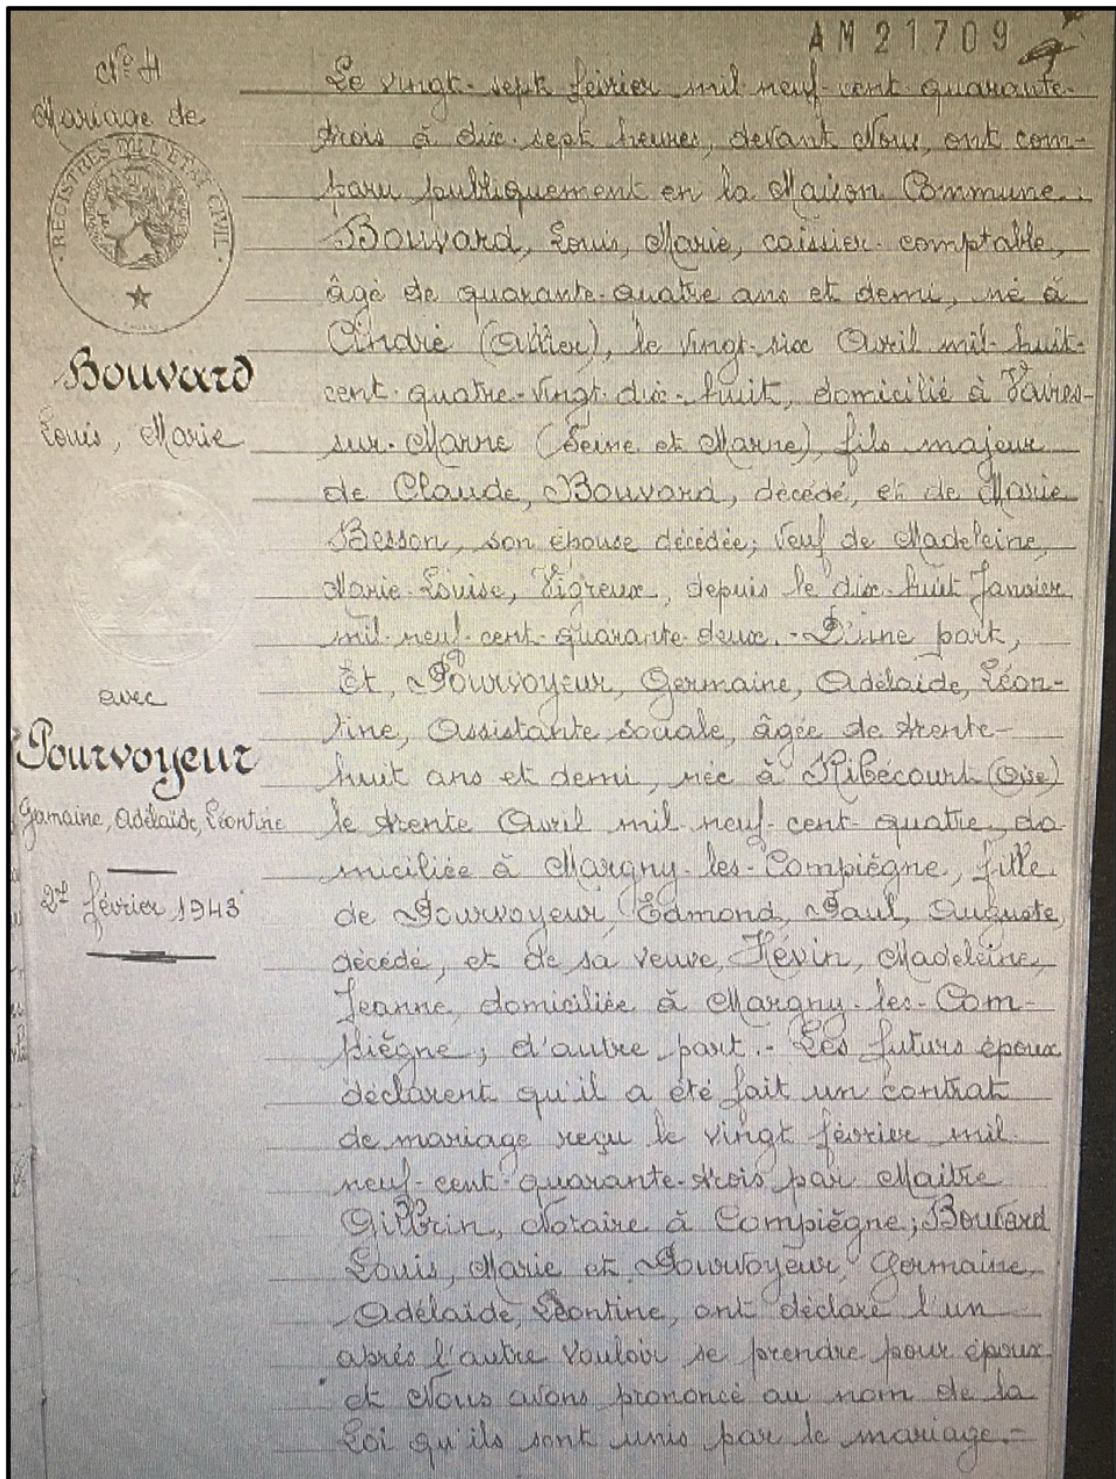 AM 21709
N° 4
Mariage de
REGISTRES DE L'ETAT CIVIL
Bouvard
Louis, Marie
avec
Pourvoyeur
Germaine, Adélaïde, Léontine
27 février 1943
Le vingt-sept février mil-neuf-cent-quarante-
trois à dix-sept heures, devant Nous, ont com-
paru publiquement en la Maison Commune :
Bouvard, Louis, Marie, caissier-comptable,
âgé de quarante-quatre ans et demi, né à
Cindré (Allier), le vingt-six Avril mil-huit-
cent-quatre-vingt-dix-huit, domicilié à Vaires-
sur-Marne (Seine et Marne), fils majeur
de Claude, Bouvard, décédé, et de Marie
Besson, son épouse décédée; Veuf de Madeleine,
Marie-Louise, Vigreux, depuis le dix-huit Janvier
mil-neuf-cent-quarante-deux. - D'une part,
Et, Pourvoyeur, Germaine, Adélaïde, Léon-
tine, Assistante sociale, âgée de trente-
huit ans et demi, née à Ribécourt (Oise)
le trente Avril mil-neuf-cent-quatre, do-
miciliée à Margny-les-Compiègne, fille
de Pourvoyeur, Edmond, Paul, Auguste,
décédé, et de sa veuve, Hévin, Madeleine,
Jeanne, domiciliée à Margny-les-Com-
piègne, d'autre part. - Les futurs époux
déclarent qu'il a été fait un contrat
de mariage reçu le vingt février mil-
neuf-cent-quarante-trois par Maître
Gilbrin, Notaire à Compiègne; Bouvard
Louis, Marie et Pourvoyeur, Germaine,
Adélaïde, Léontine, ont déclaré l'un
après l'autre vouloir se prendre pour époux
et Nous avons prononcé au nom de la
Loi qu'ils sont unis par le mariage.-